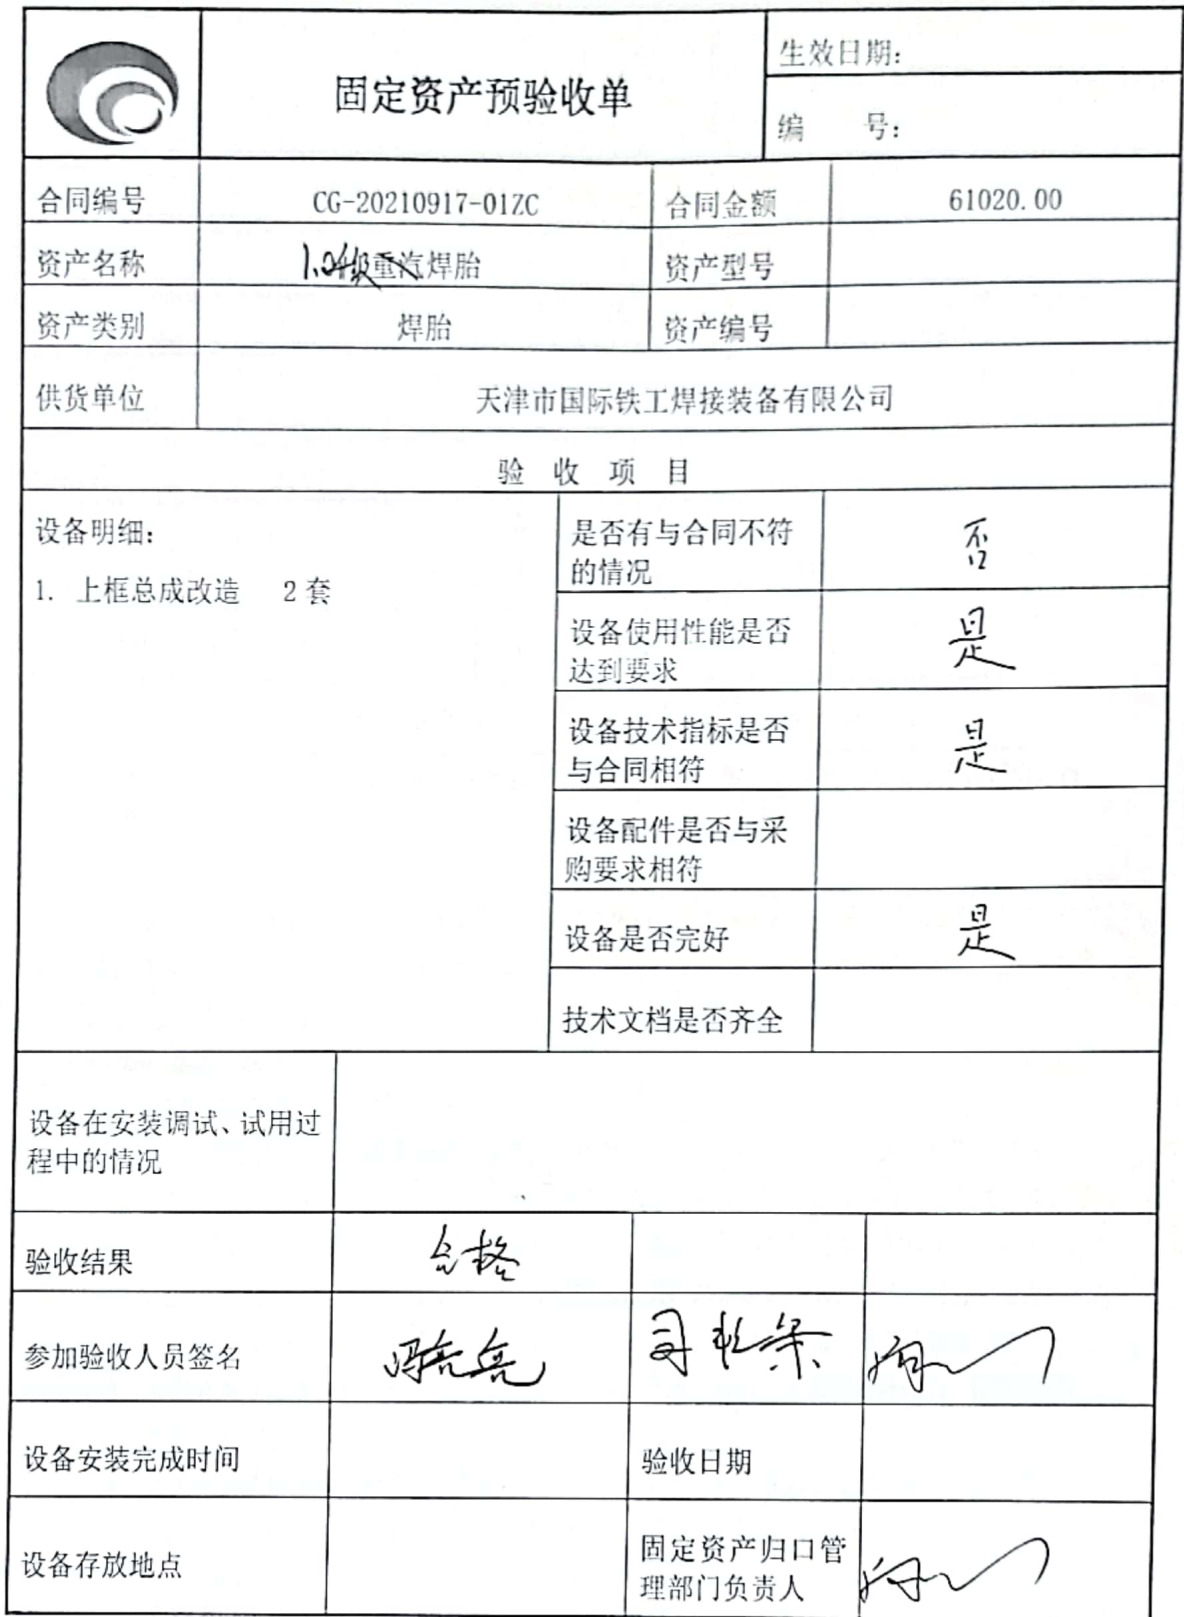 固定资产预验收单
生效日期:
编 号:
合同编号 CG-20210917-01ZC 合同金额 61020.00
资产名称 重汽焊胎 资产型号
资产类别 焊胎 资产编号
供货单位 天津市国际铁工焊接装备有限公司
验 收 项 目
设备明细:
1. 上框总成改造 2 套
是否有与合同不符
的情况
否
设备使用性能是否
达到要求
是
设备技术指标是否
与合同相符
是
设备配件是否与采
购要求相符
设备是否完好 是
技术文档是否齐全
设备在安装调试、试用过
程中的情况
验收结果 合格
参加验收人员签名
设备安装完成时间 验收日期
设备存放地点
固定资产归口管
理部门负责人